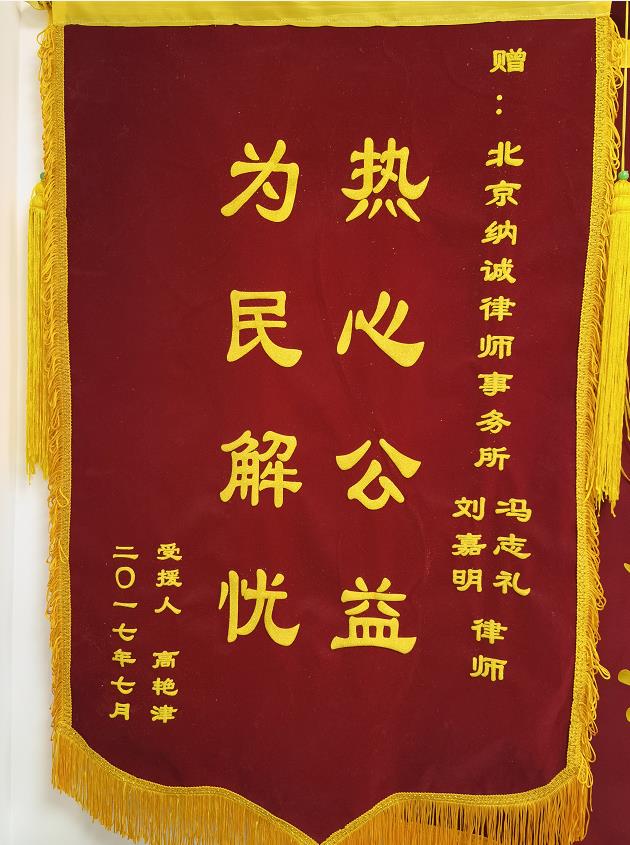 赠：北京纳诚律师事务所
冯志礼
刘嘉明
律师
热心公益
为民解忧
受援人 高艳津
二〇一七年七月